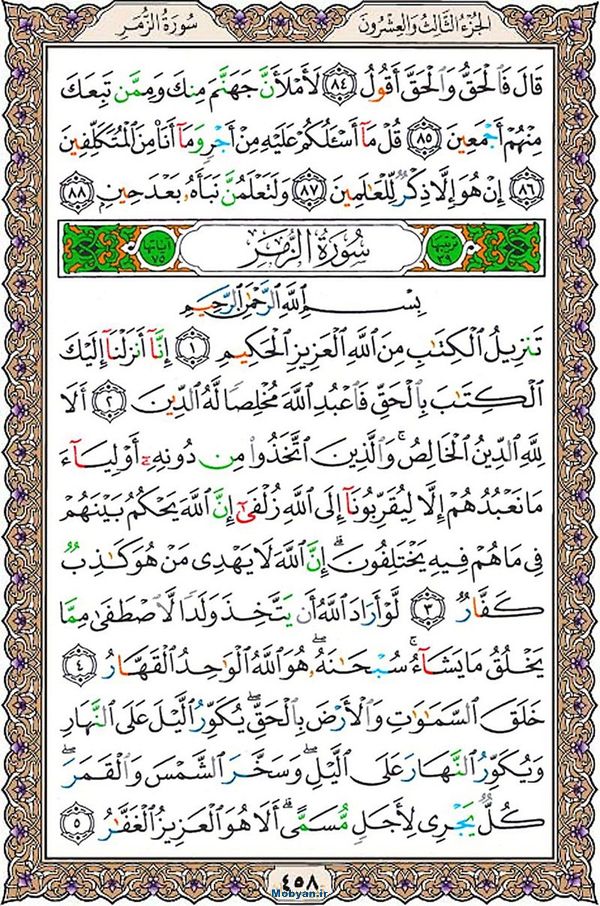 الجُزءُ الثَّالِثُ وَالعِشرُونَ
سُورَةُ الزُّمَرِ
قَالَ فَالْحَقُّ وَالْحَقَّ أَقُولُ ٨٤ لَأَمْلَأَنَّ جَهَنَّمَ مِنكَ وَمِمَّن تَبِعَكَ
مِنْهُمْ أَجْمَعِينَ ٨٥ قُلْ مَآ أَسْـَٔلُكُمْ عَلَيْهِ مِنْ أَجْرٍ وَمَآ أَنَا۠ مِنَ الْمُتَكَلِّفِينَ
٨٦ إِنْ هُوَ إِلَّا ذِكْرٌ لِّلْعَٰلَمِينَ ٨٧ وَلَتَعْلَمُنَّ نَبَأَهُۥ بَعْدَ حِينٍۭ ٨٨
تَرتيبُها ٣٩
سُورَةُ الزُّمَرِ
آياتُها ٧٥
بِسْمِ اللَّهِ الرَّحْمَٰنِ الرَّحِيمِ
تَنزِيلُ الْكِتَٰبِ مِنَ اللَّهِ الْعَزِيزِ الْحَكِيمِ ١ إِنَّآ أَنزَلْنَآ إِلَيْكَ
الْكِتَٰبَ بِالْحَقِّ فَاعْبُدِ اللَّهَ مُخْلِصًا لَّهُ الدِّينَ ٢ أَلَا
لِلَّهِ الدِّينُ الْخَالِصُ ۚ وَالَّذِينَ اتَّخَذُوا۟ مِن دُونِهِۦٓ أَوْلِيَآءَ
مَا نَعْبُدُهُمْ إِلَّا لِيُقَرِّبُونَآ إِلَى اللَّهِ زُلْفَىٰٓ إِنَّ اللَّهَ يَحْكُمُ بَيْنَهُمْ
فِى مَا هُمْ فِيهِ يَخْتَلِفُونَ ۗ إِنَّ اللَّهَ لَا يَهْدِى مَنْ هُوَ كَٰذِبٌ
كَفَّارٌ ٣ لَّوْ أَرَادَ اللَّهُ أَن يَتَّخِذَ وَلَدًا لَّاصْطَفَىٰ مِمَّا
يَخْلُقُ مَا يَشَآءُ ۚ سُبْحَٰنَهُۥ ۖ هُوَ اللَّهُ الْوَٰحِدُ الْقَهَّارُ ٤
خَلَقَ السَّمَٰوَٰتِ وَالْأَرْضَ بِالْحَقِّ ۖ يُكَوِّرُ الَّيْلَ عَلَى النَّهَارِ
وَيُكَوِّرُ النَّهَارَ عَلَى الَّيْلِ ۖ وَسَخَّرَ الشَّمْسَ وَالْقَمَرَ ۖ
كُلٌّ يَجْرِى لِأَجَلٍ مُّسَمًّى ۗ أَلَا هُوَ الْعَزِيزُ الْغَفَّٰرُ ٥
٤٥٨
Mobyan.ir